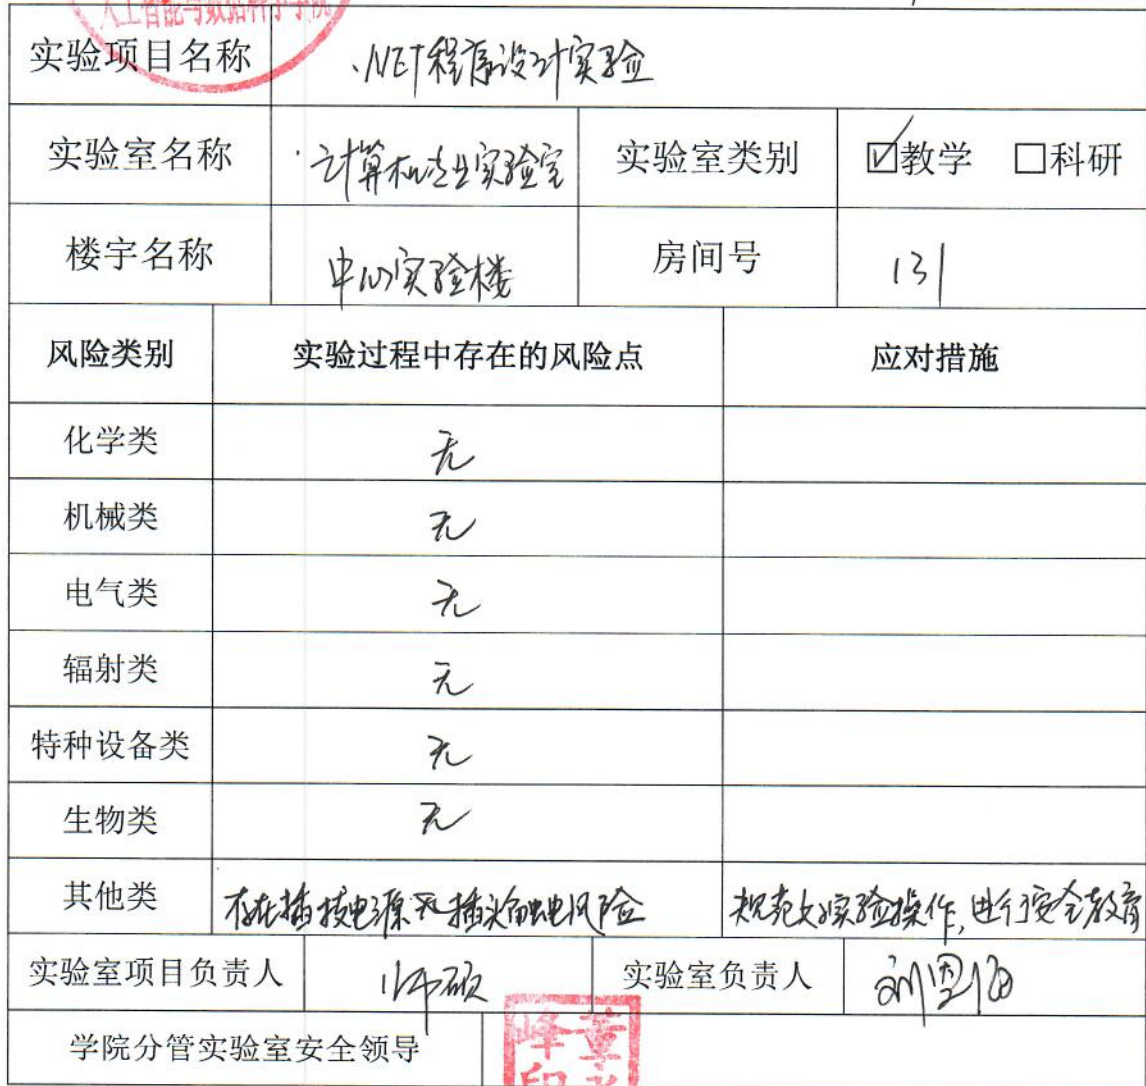 人工智能与数据科学学院
实验项目名称 .NET程序设计实验
实验室名称 计算机专业实验室 实验室类别 ☑教学 □科研
楼宇名称 中心实验楼 房间号 131
风险类别 实验过程中存在的风险点 应对措施
化学类 无
机械类 无
电气类 无
辐射类 无
特种设备类 无
生物类 无
其他类 存在插拔电源插头触电风险 规范实验操作,进行安全教育
实验室项目负责人 师硕 实验室负责人
学院分管实验室安全领导